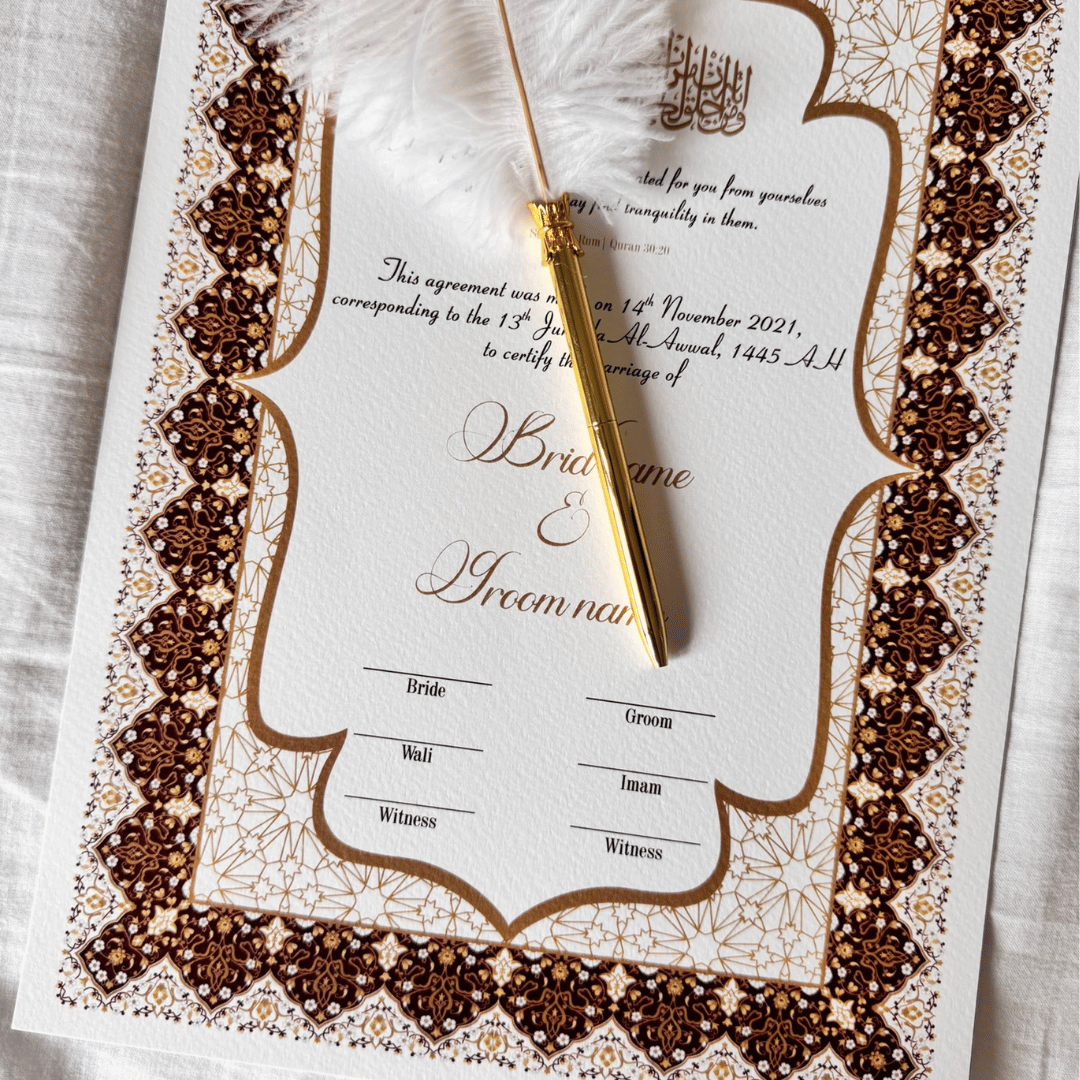 for you from yourselves
tranquility in them.
Rum | Quran 30:20
This agreement was on 14th November 2021,
corresponding to the 13th Al-Awwal, 1445 A.H
to certify the marriage of
Bride name
&
Groom name
Bride
Groom
Wali
Imam
Witness
Witness